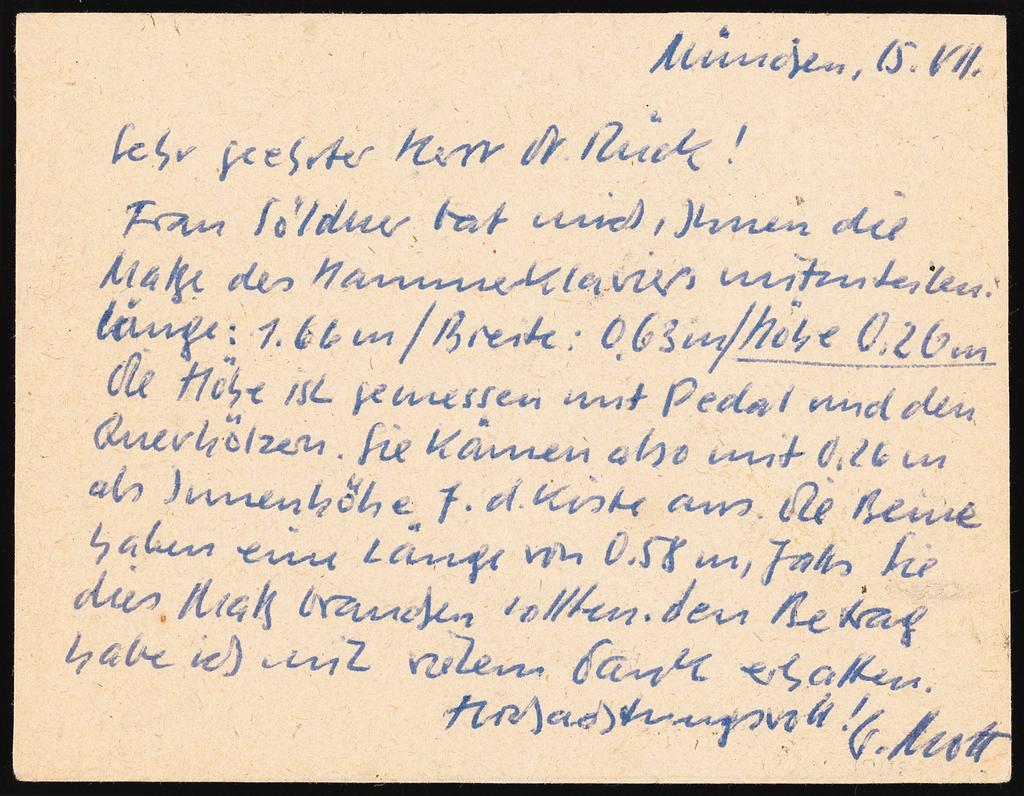 München, 15. VII.
Sehr geehrter Herr Dr. Rück!
Frau Söldner bat mich, Ihnen die
Maße des Hammerklaviers mitzuteilen:
Länge: 1.66 m/Breite: 0.63 m/Höhe 0.26 m
Die Höhe ist gemessen mit Pedal und den
Querhölzern. Sie kämen also mit 0.26 m
als Innenhöhe f. d. Kiste aus. Die Beine
haben eine Länge von 0.58 m, falls Sie
dies Maß brauchen sollten. Den Betrag
habe ich mit vielem Dank erhalten.
Hochachtungsvoll!